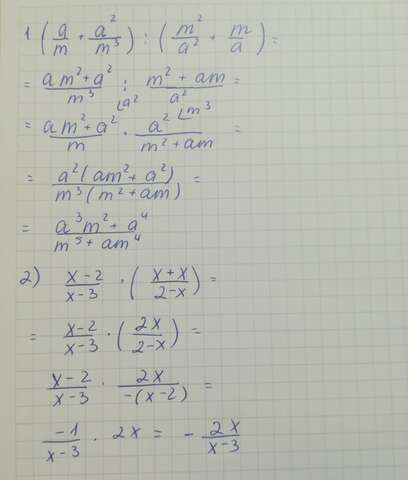 1 (a/m + a²/m³) : (m²/a² + m/a) =
= (am² + a²)/m³ : (m² + am)/a² =
∠a² ∠m³
= (am² + a²)/m · a²/(m² + am) =
= a²(am² + a²)/m³(m² + am) =
= (a³m² + a⁴)/(m⁵ + am⁴)
2) (x-2)/(x-3) · ((x+x)/(2-x)) =
= (x-2)/(x-3) · (2x/(2-x)) =
(x-2)/(x-3) · 2x/(-(x-2)) =
-1/(x-3) · 2x = - 2x/(x-3)